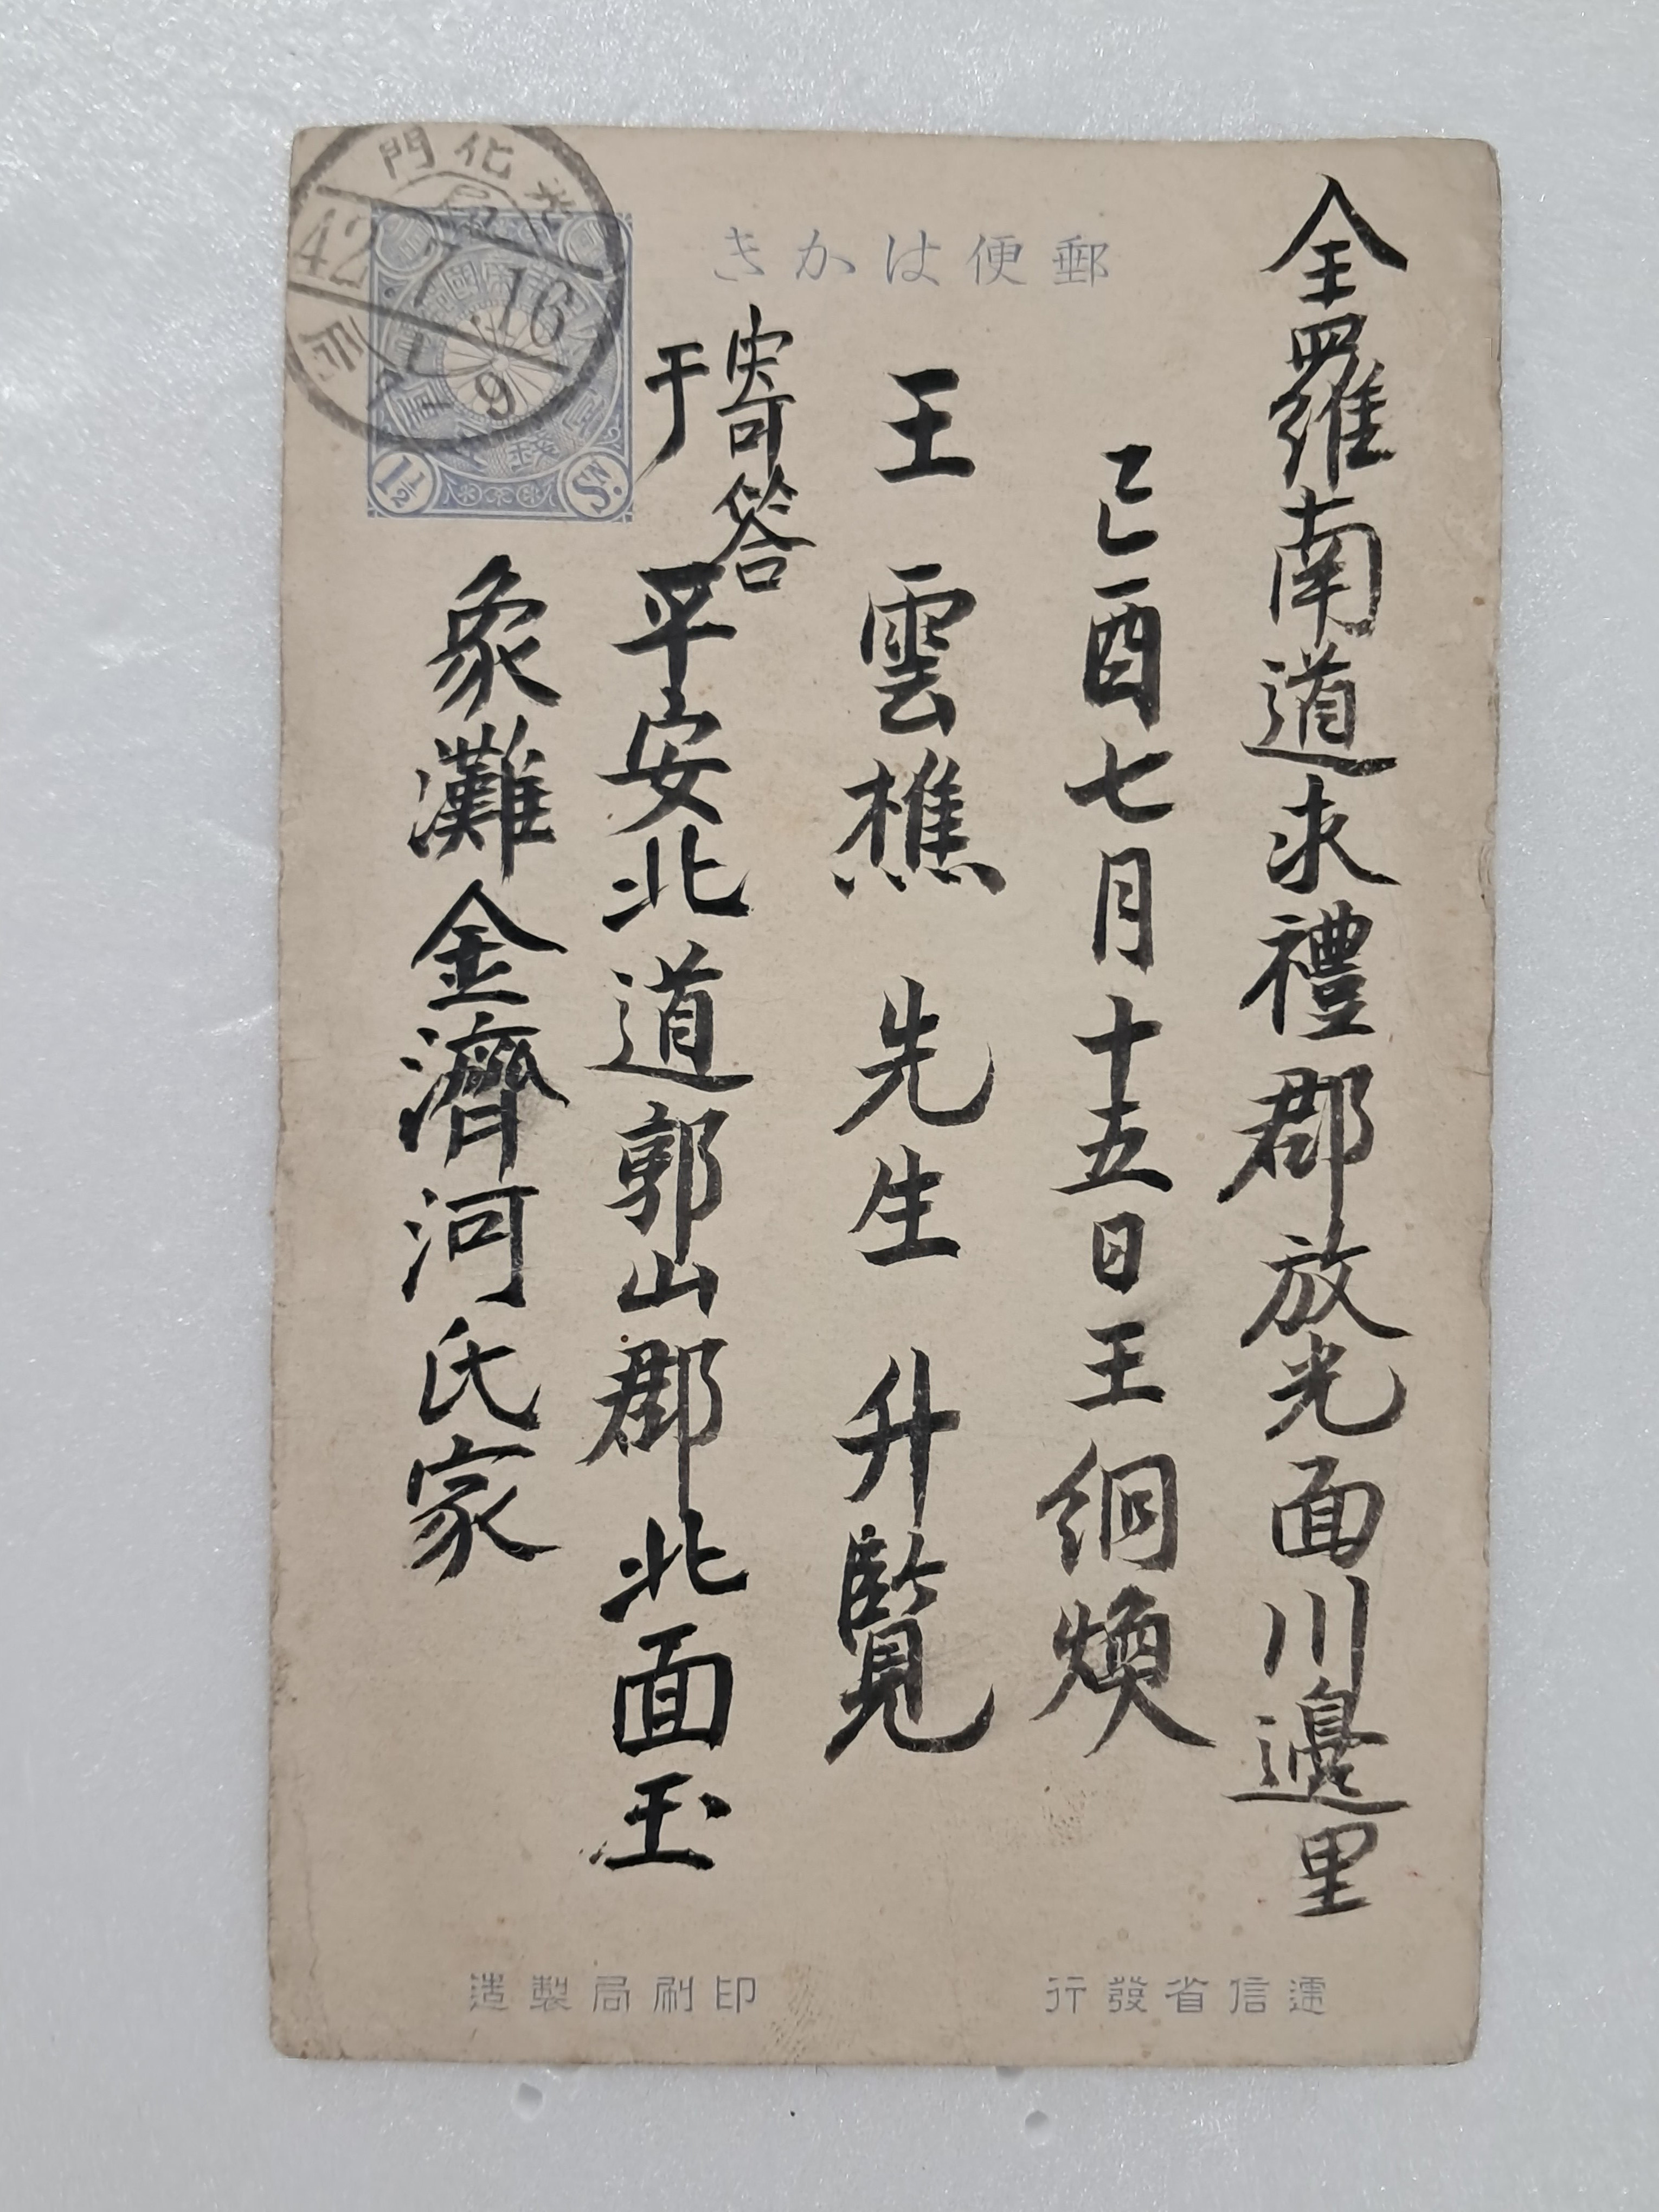 郵便はかき
全羅南道求禮郡放光面川邊里
己酉七月十五日王絅煥
王雲樵先生升覽
寄答
于平安北道郭山郡北面玉
象灘金濟河氏家
光化門
42
16
9
大日本帝國郵便
壹錢五厘
1½ Sn.
遞信省發行
印刷局製造